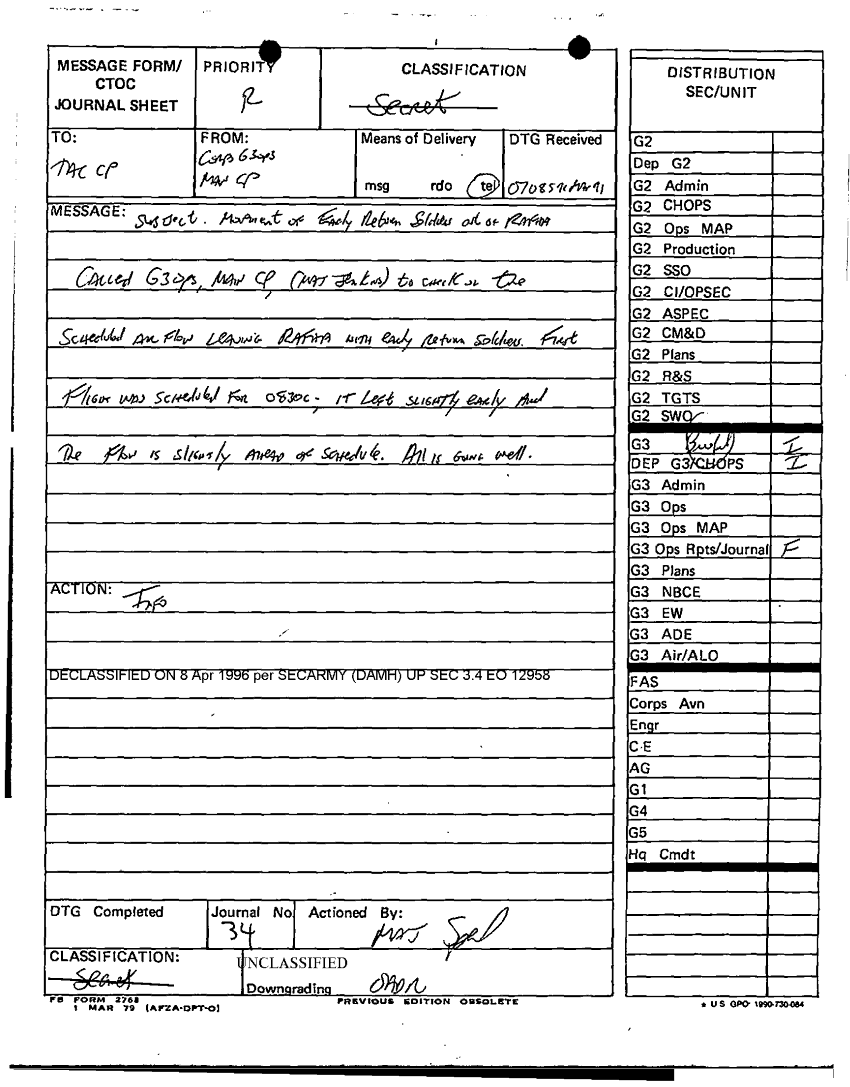 MESSAGE FORM/
CTOC
JOURNAL SHEET
PRIORITY
R
CLASSIFICATION
Secret
TO:
TAC CP
FROM:
Corps G3ops
MAIN CP
Means of Delivery
msg rdo tel
DTG Received
MESSAGE: Subject. Movement of Early Return Soldiers out of RAFHA
Called G3ops, MAIN CP, (MAJ Jenkins) to check on the
Scheduled Air Flow Leaving RAFHA with early return soldiers. First
Flight was scheduled for 0830C - it left slightly early and
The flow is slightly ahead of schedule. All is going well.
ACTION: Info
DECLASSIFIED ON 8 Apr 1996 per SECARMY (DAMH) UP SEC 3.4 EO 12958
DTG Completed
Journal No
34
Actioned By:
MAJ
CLASSIFICATION:
Secret
UNCLASSIFIED
Downgrading OADR
FB FORM 2768
1 MAR 79 (AFZA-DPT-O)
PREVIOUS EDITION OBSOLETE
DISTRIBUTION
SEC/UNIT
G2
Dep G2
G2 Admin
G2 CHOPS
G2 Ops MAP
G2 Production
G2 SSO
G2 CI/OPSEC
G2 ASPEC
G2 CM&D
G2 Plans
G2 R&S
G2 TGTS
G2 SWO
G3 I
DEP G3/CHOPS I
G3 Admin
G3 Ops
G3 Ops MAP
G3 Ops Rpts/Journal F
G3 Plans
G3 NBCE
G3 EW
G3 ADE
G3 Air/ALO
FAS
Corps Avn
Engr
C-E
AG
G1
G4
G5
Hq Cmdt
★ U S GPO- 1990-730-084